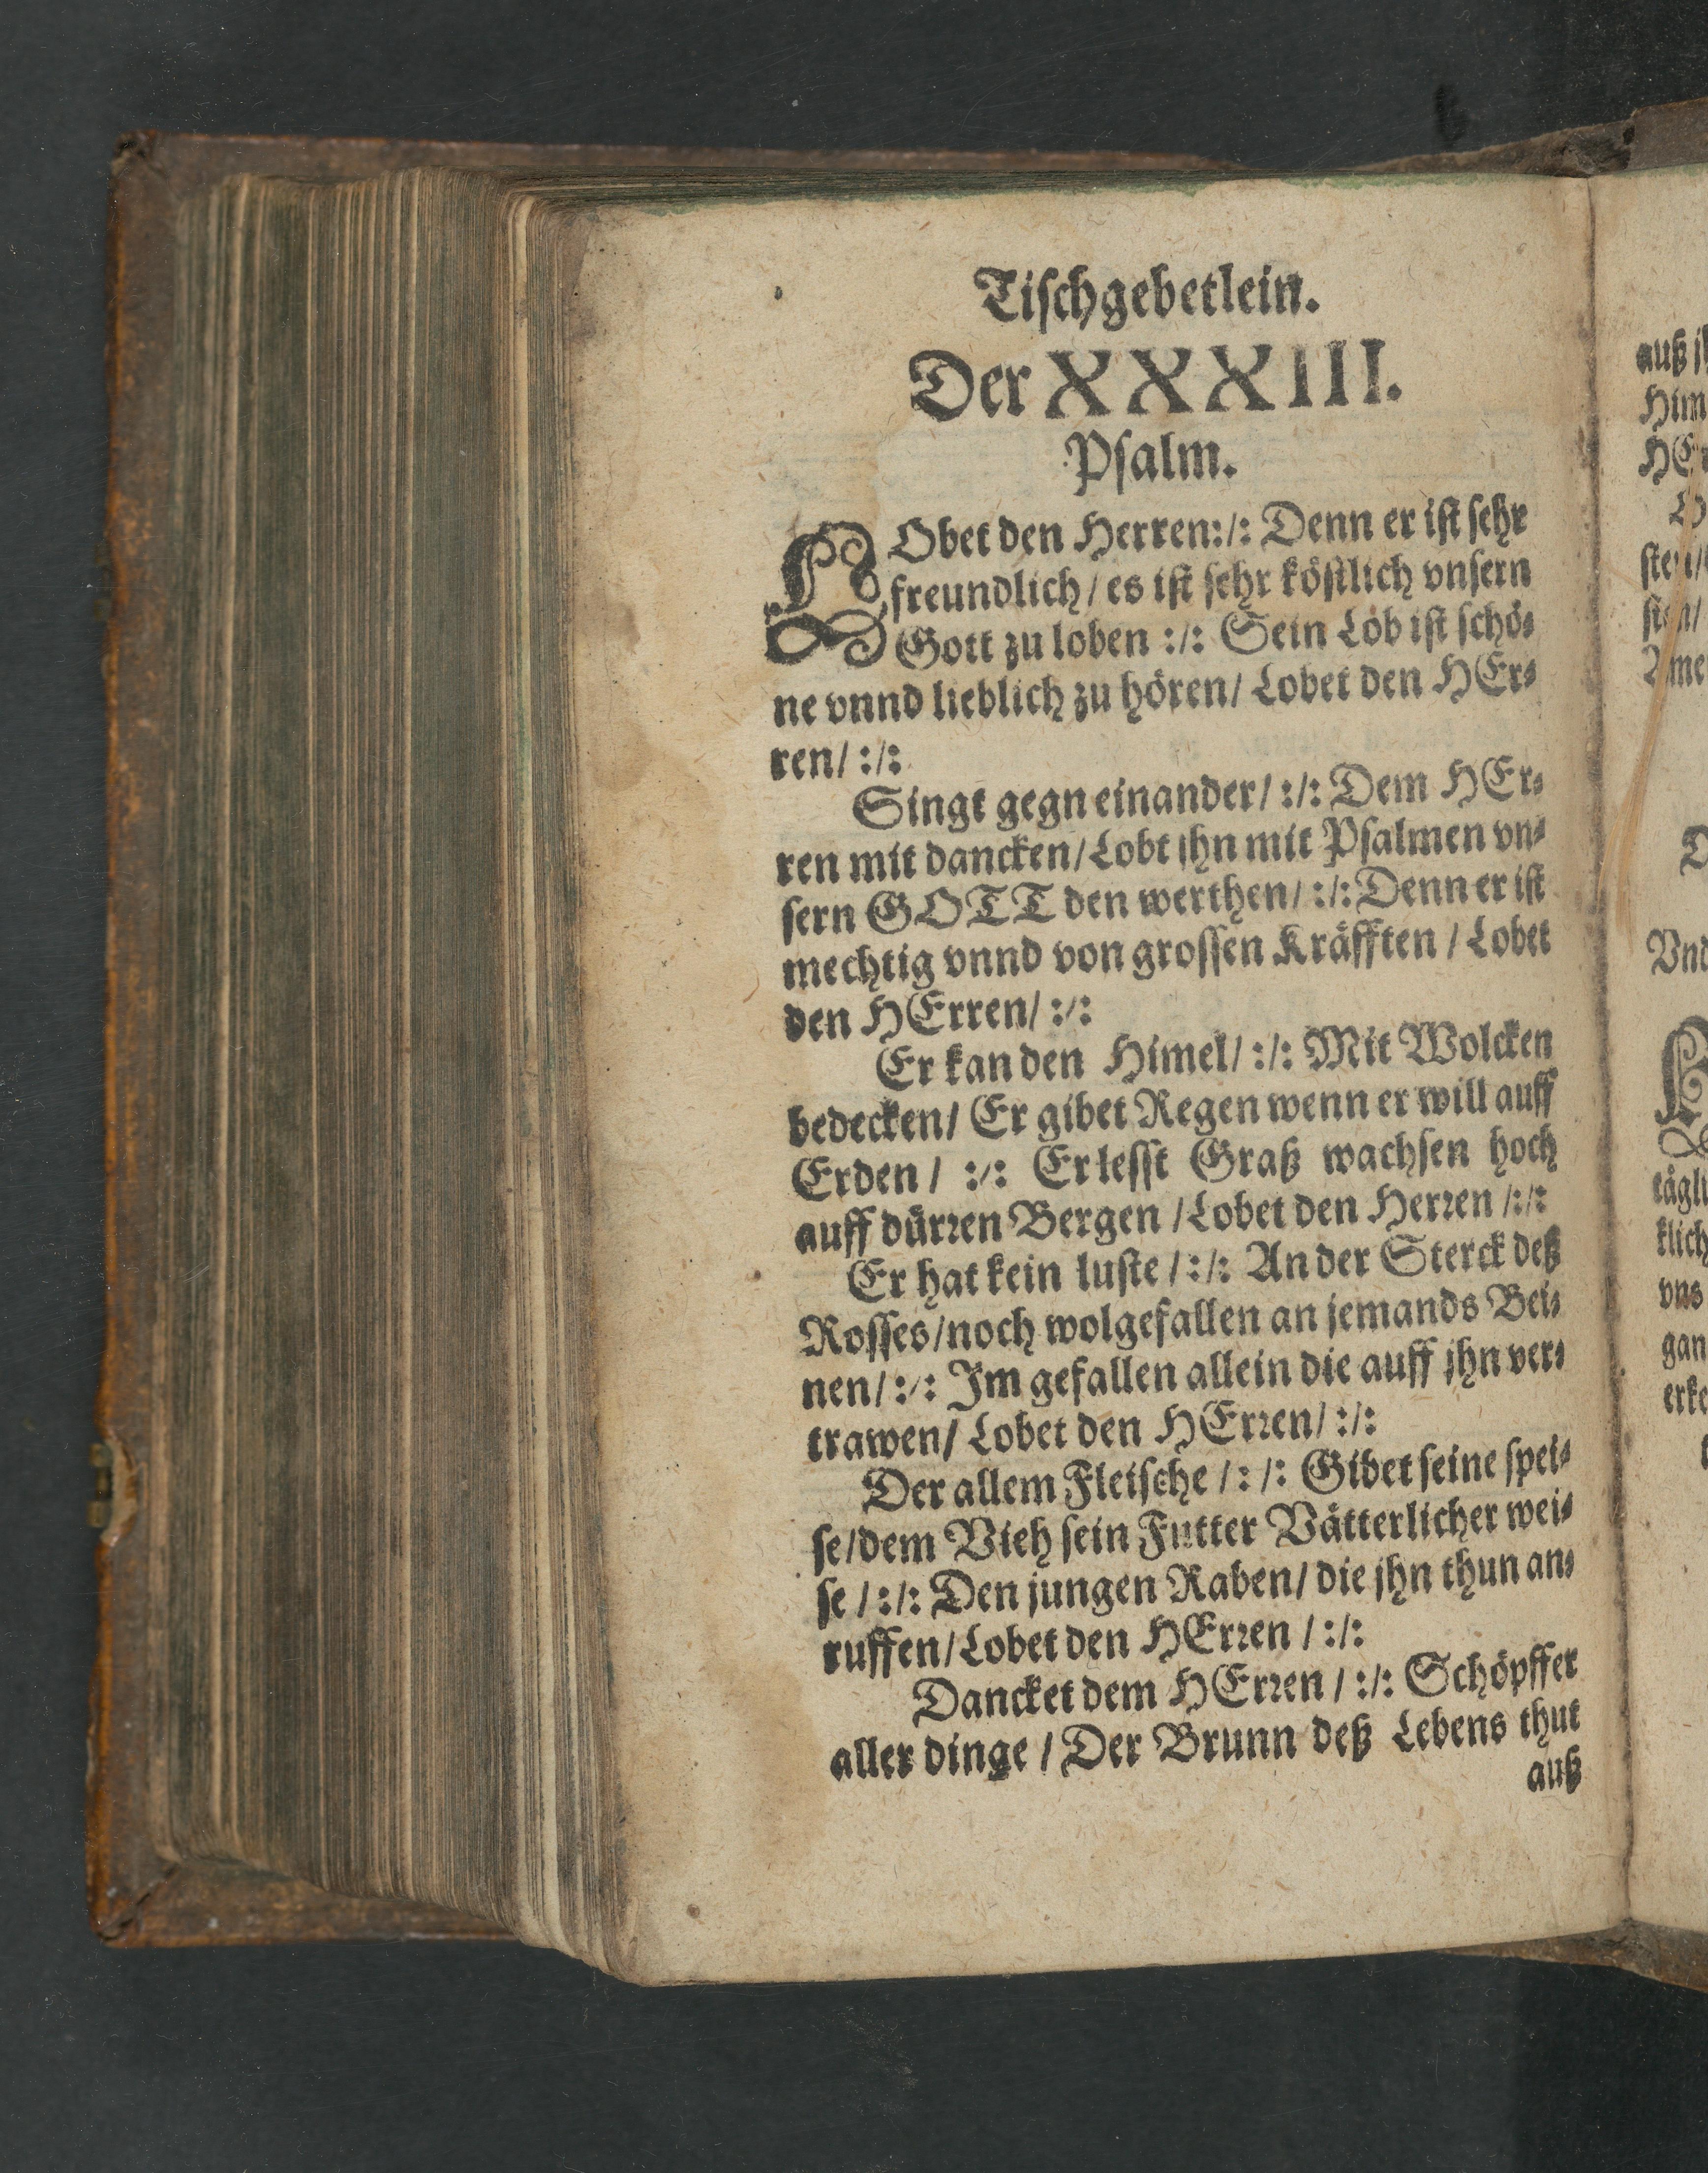 Tiſchgebetlein.
Der XXXIII.
Pſalm.
LObet den Herren:/: Denn er iſt ſehr
freundlich/ es iſt ſehr köſtlich vnſern
Gott zu loben :/: Sein Lob iſt ſchö⸗
ne vnnd lieblich zu hören/ Lobet den HEr⸗
ren/ :/:
Singt gegn einander/ :/: Dem HEr⸗
ren mit dancken/ Lobt jhn mit Pſalmen vn⸗
ſern GOTT den werthen/ :/: Denn er iſt
mechtig vnnd von groſſen Kräfften / Lobet
den HErren/ :/:
Er kan den Himel/ :/: Mit Wolcken
bedecken/ Er gibet Regen wenn er will auff
Erden / :/: Er leſſt Graß wachſen hoch
auff dürꝛen Bergen / Lobet den Herꝛen /:/:
Er hat kein luſte / :/: An der Sterck deß
Roſſes/ noch wolgefallen an jemands Bei⸗
nen/ :/: Im gefallen allein die auff jhn ver⸗
trawen/ Lobet den HErꝛen/ :/:
Der allem Fleiſche / :/: Gibet ſeine ſpei⸗
ſe/ dem Vieh ſein Futter Vätterlicher wei⸗
ſe / :/: Den jungen Raben/ die jhn thun an⸗
ruffen/ Lobet den HErꝛen / :/:
Dancket dem HErꝛen / :/: Schöpffer
aller dinge / Der Brunn deß Lebens thut
auß
auß
Him
täg
klich
vns
gan
erke